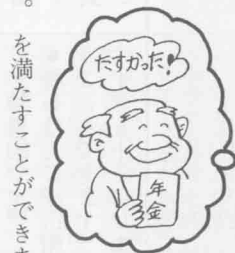 たすかった!
年金
。
を満たすことができ